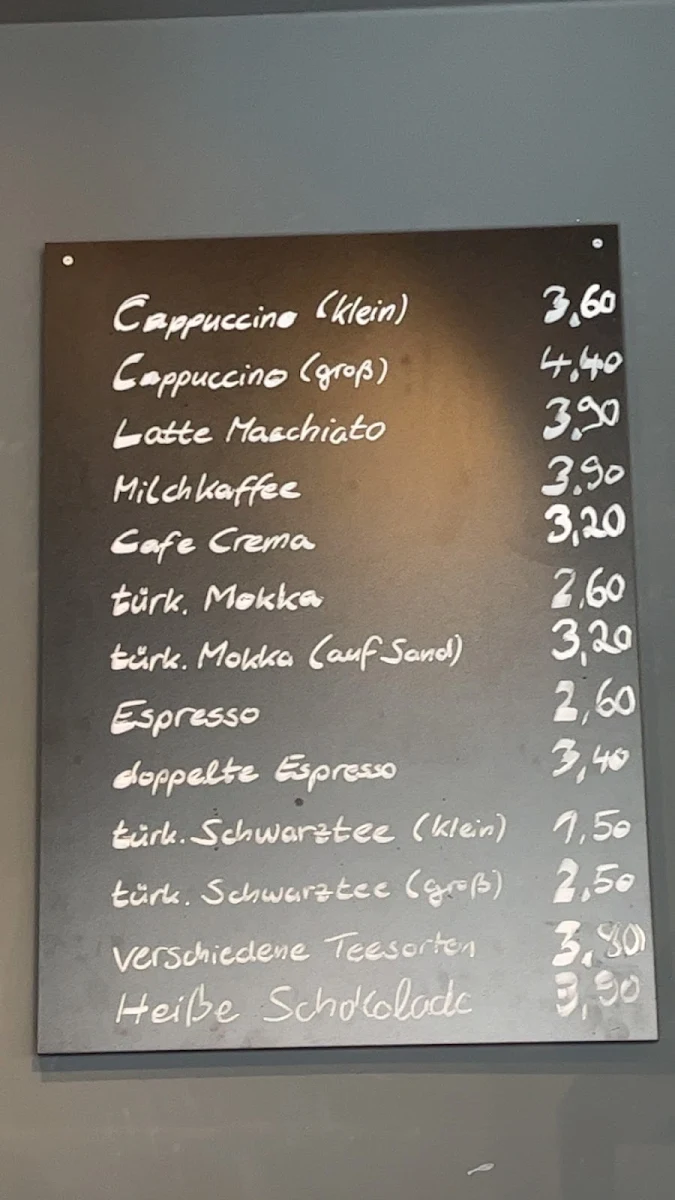 Cappuccino (klein) 3,60
Cappuccino (groß) 4,40
Latte Macchiato 3,90
Milchkaffee 3,90
Cafe Crema 3,20
türk. Mokka 2,60
türk. Mokka (auf Sand) 3,20
Espresso 2,60
doppelte Espresso 3,40
türk. Schwarztee (klein) 1,50
türk. Schwarztee (groß) 2,50
verschiedene Teesorten 3,90
Heiße Schokolade 3,90